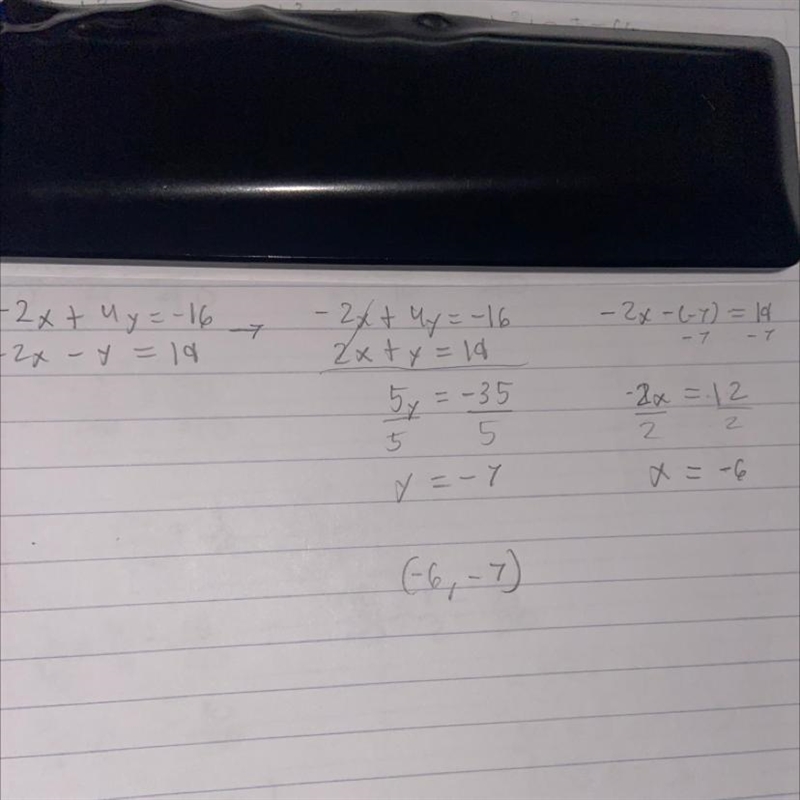 -2x + 4y = -16 →
-2x - y = 19
-2x + 4y = -16
2x + y = 19
5y = -35
5 5
y = -7
-2x - (-7) = 19
-7 -7
-2x = 12
2 2
x = -6
(-6, -7)